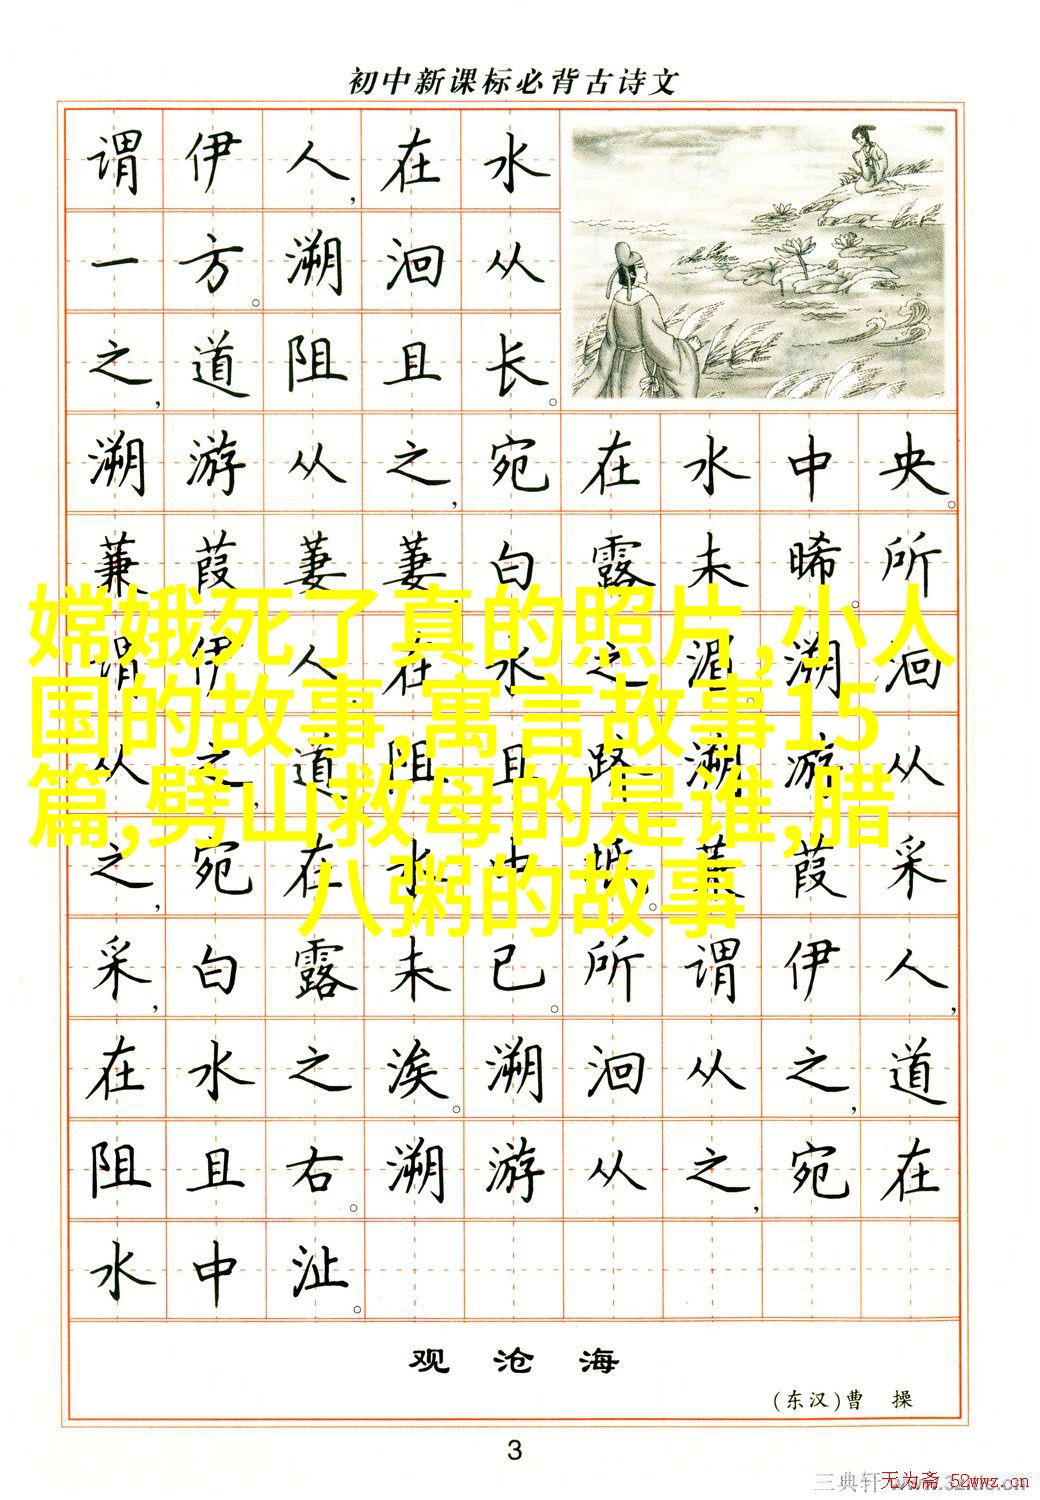 初中新课标必背古诗文
谓伊人,在水
一方。溯洄从
之,道阻且长。
溯游从之,宛在水中央。
蒹葭萋萋,白露未晞。所
谓伊人,在水之湄。溯洄
从之,道阻且跻。溯游从
之,宛在水中坻。蒹葭采
采,白露未已。所谓伊人,
在水之涘。溯洄从之,道
阻且右。溯游从之,宛在
水中沚。
嫦娥死了真的照片,小人
国的故事,寓言故事15
篇,劈山救母的是谁,腊
八粥的故事
观沧海
(东汉)曹 操
3
三典轩
无为斋 52wwz.cn